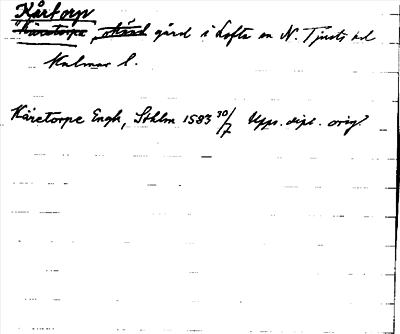 Kårtorp
Käretorpe, skänd gård i Lofta sn N. Tjusts hd
Kalmar l.
Käretorpe Engh, Sthlm 1583 30/7 Upps. dipl. orig.